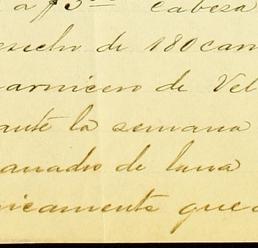 a $3.00 Cabeza
esecho de 180 car
carnicero de Vel
ante la semana
anado de lana
nicamente que